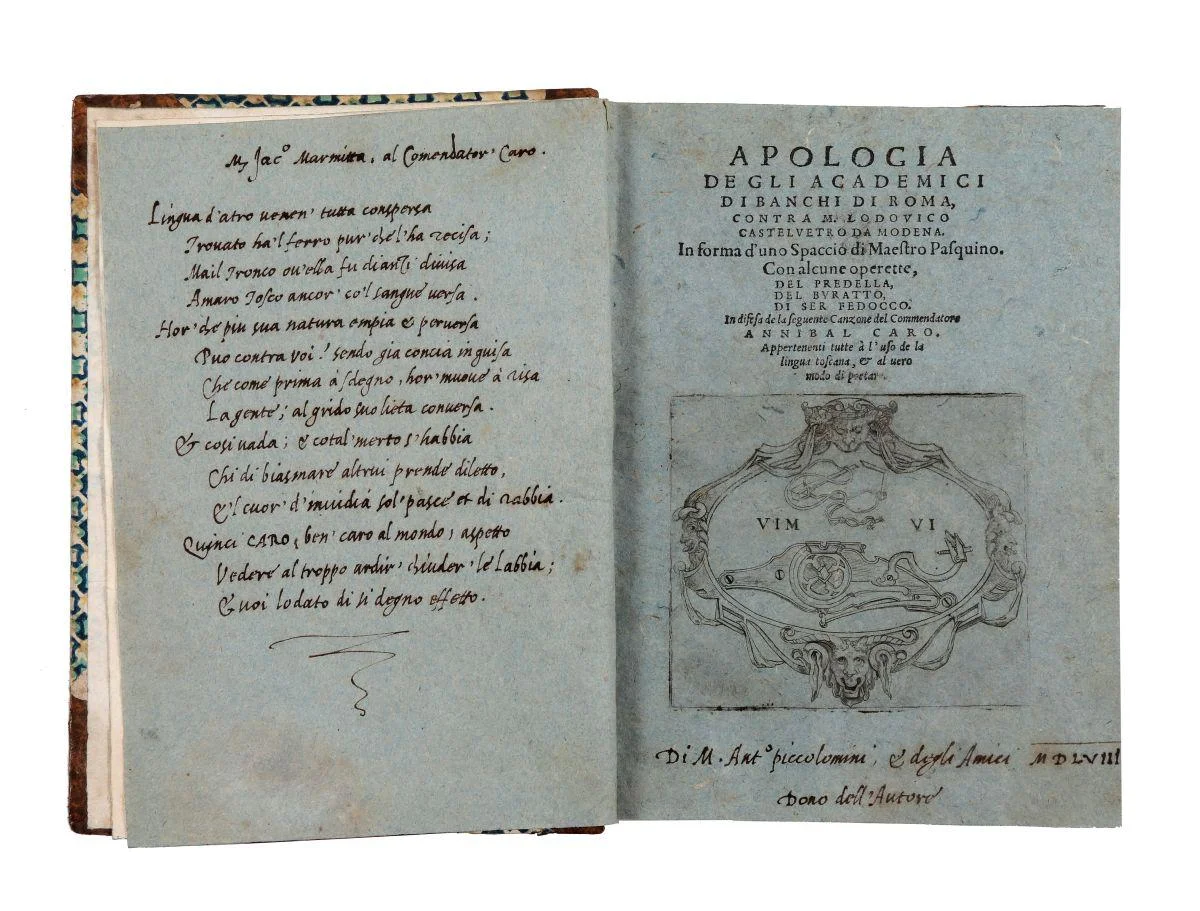 M. Jac.º Marmitta, al Comendator' Caro.
Lingua d'atro venen' tutta conspersa
Trovato ha'l ferro pur che l'ha recisa;
Ma il Tronco ov'ella fu dianzi divisa
Amaro Tosco ancor' co'l sangue versa.
Hor' che piu sua natura empia & perversa
Puo contra voi? sendo gia concia in guisa
Che come prima à sdegno, hor' muove à risa
La gente; al grido suo lieta conversa.
& cosi vada; & cotal' merto s'habbia
Chi di biasmare altrui prende diletto,
& 'l cuor' d'invidia sol' pasce et di rabbia.
Quinci CARO, ben' caro al mondo, aspetto
Vedere al troppo ardir' chiuder' le labbia;
& voi lodato di si degno effetto.
APOLOGIA
DEGLI ACADEMICI
DI BANCHI DI ROMA,
CONTRA M. LODOVICO
CASTELVETRO DA MODENA.
In forma d'uno Spaccio di Maestro Pasquino.
Con alcune operette,
DEL PREDELLA,
DEL BVRATTO,
DI SER FEDOCCO.
In difesa de la seguente Canzone del Commendatore
ANNIBAL CARO.
Appertenenti tutte à l'uso de la
lingua toscana, & al vero
modo di poetare.
VIM VI
Di M. Ant.º piccolomini, & degli Amici MDLVIII
Dono dell'Autore